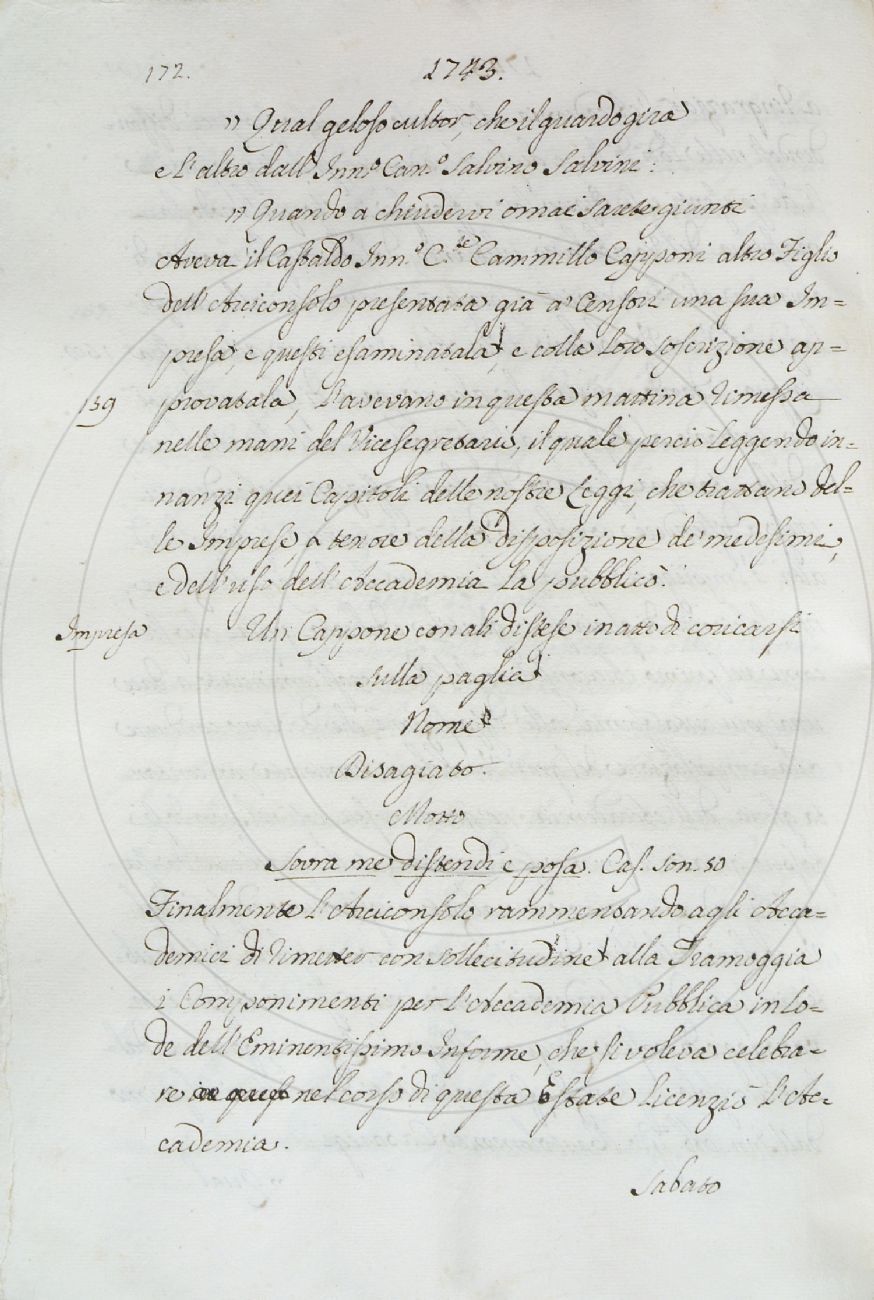 172. 1743.
" Qual geloso cultor, che il guardo gira
e l'altro dall'Inn.º Can.º Salvino Salvini:
" Quando a chiudervi omai sarete giunti
Aveva il Castaldo Inn.º C.te Cammillo Capponi altro Figlio
dell'Arciconsolo presentata già a' Censori una sua Im=
presa, e questi esaminatala, e colla loro soscrizione ap=
139 provatala, l'avevano in questa mattina rimessa
nelle mani del Vicesegretario, il quale perciò leggendo in=
nanzi quei Capitoli delle nostre Leggi, che trattano del=
le Imprese, a tenore della disposizione de' medesimi,
e dell'uso dell'Accademia la pubblicò.
Impresa Un Cappone con ali distese in atto di coricarsi
sulla paglia
Nome
Disagiato.
Motto
Sovra me distendi e posa. Cas. Son. 50
Finalmente l'Arciconsolo rammentando agli Acca=
demici di rimetter con sollecitudine alla Tramoggia
i Componimenti per l'Accademia Pubblica in lo=
de dell'Eminentissimo Informe, che si voleva celebra=
re nel corso di questa Estate licenziò l'Ac=
cademia.
Sabato